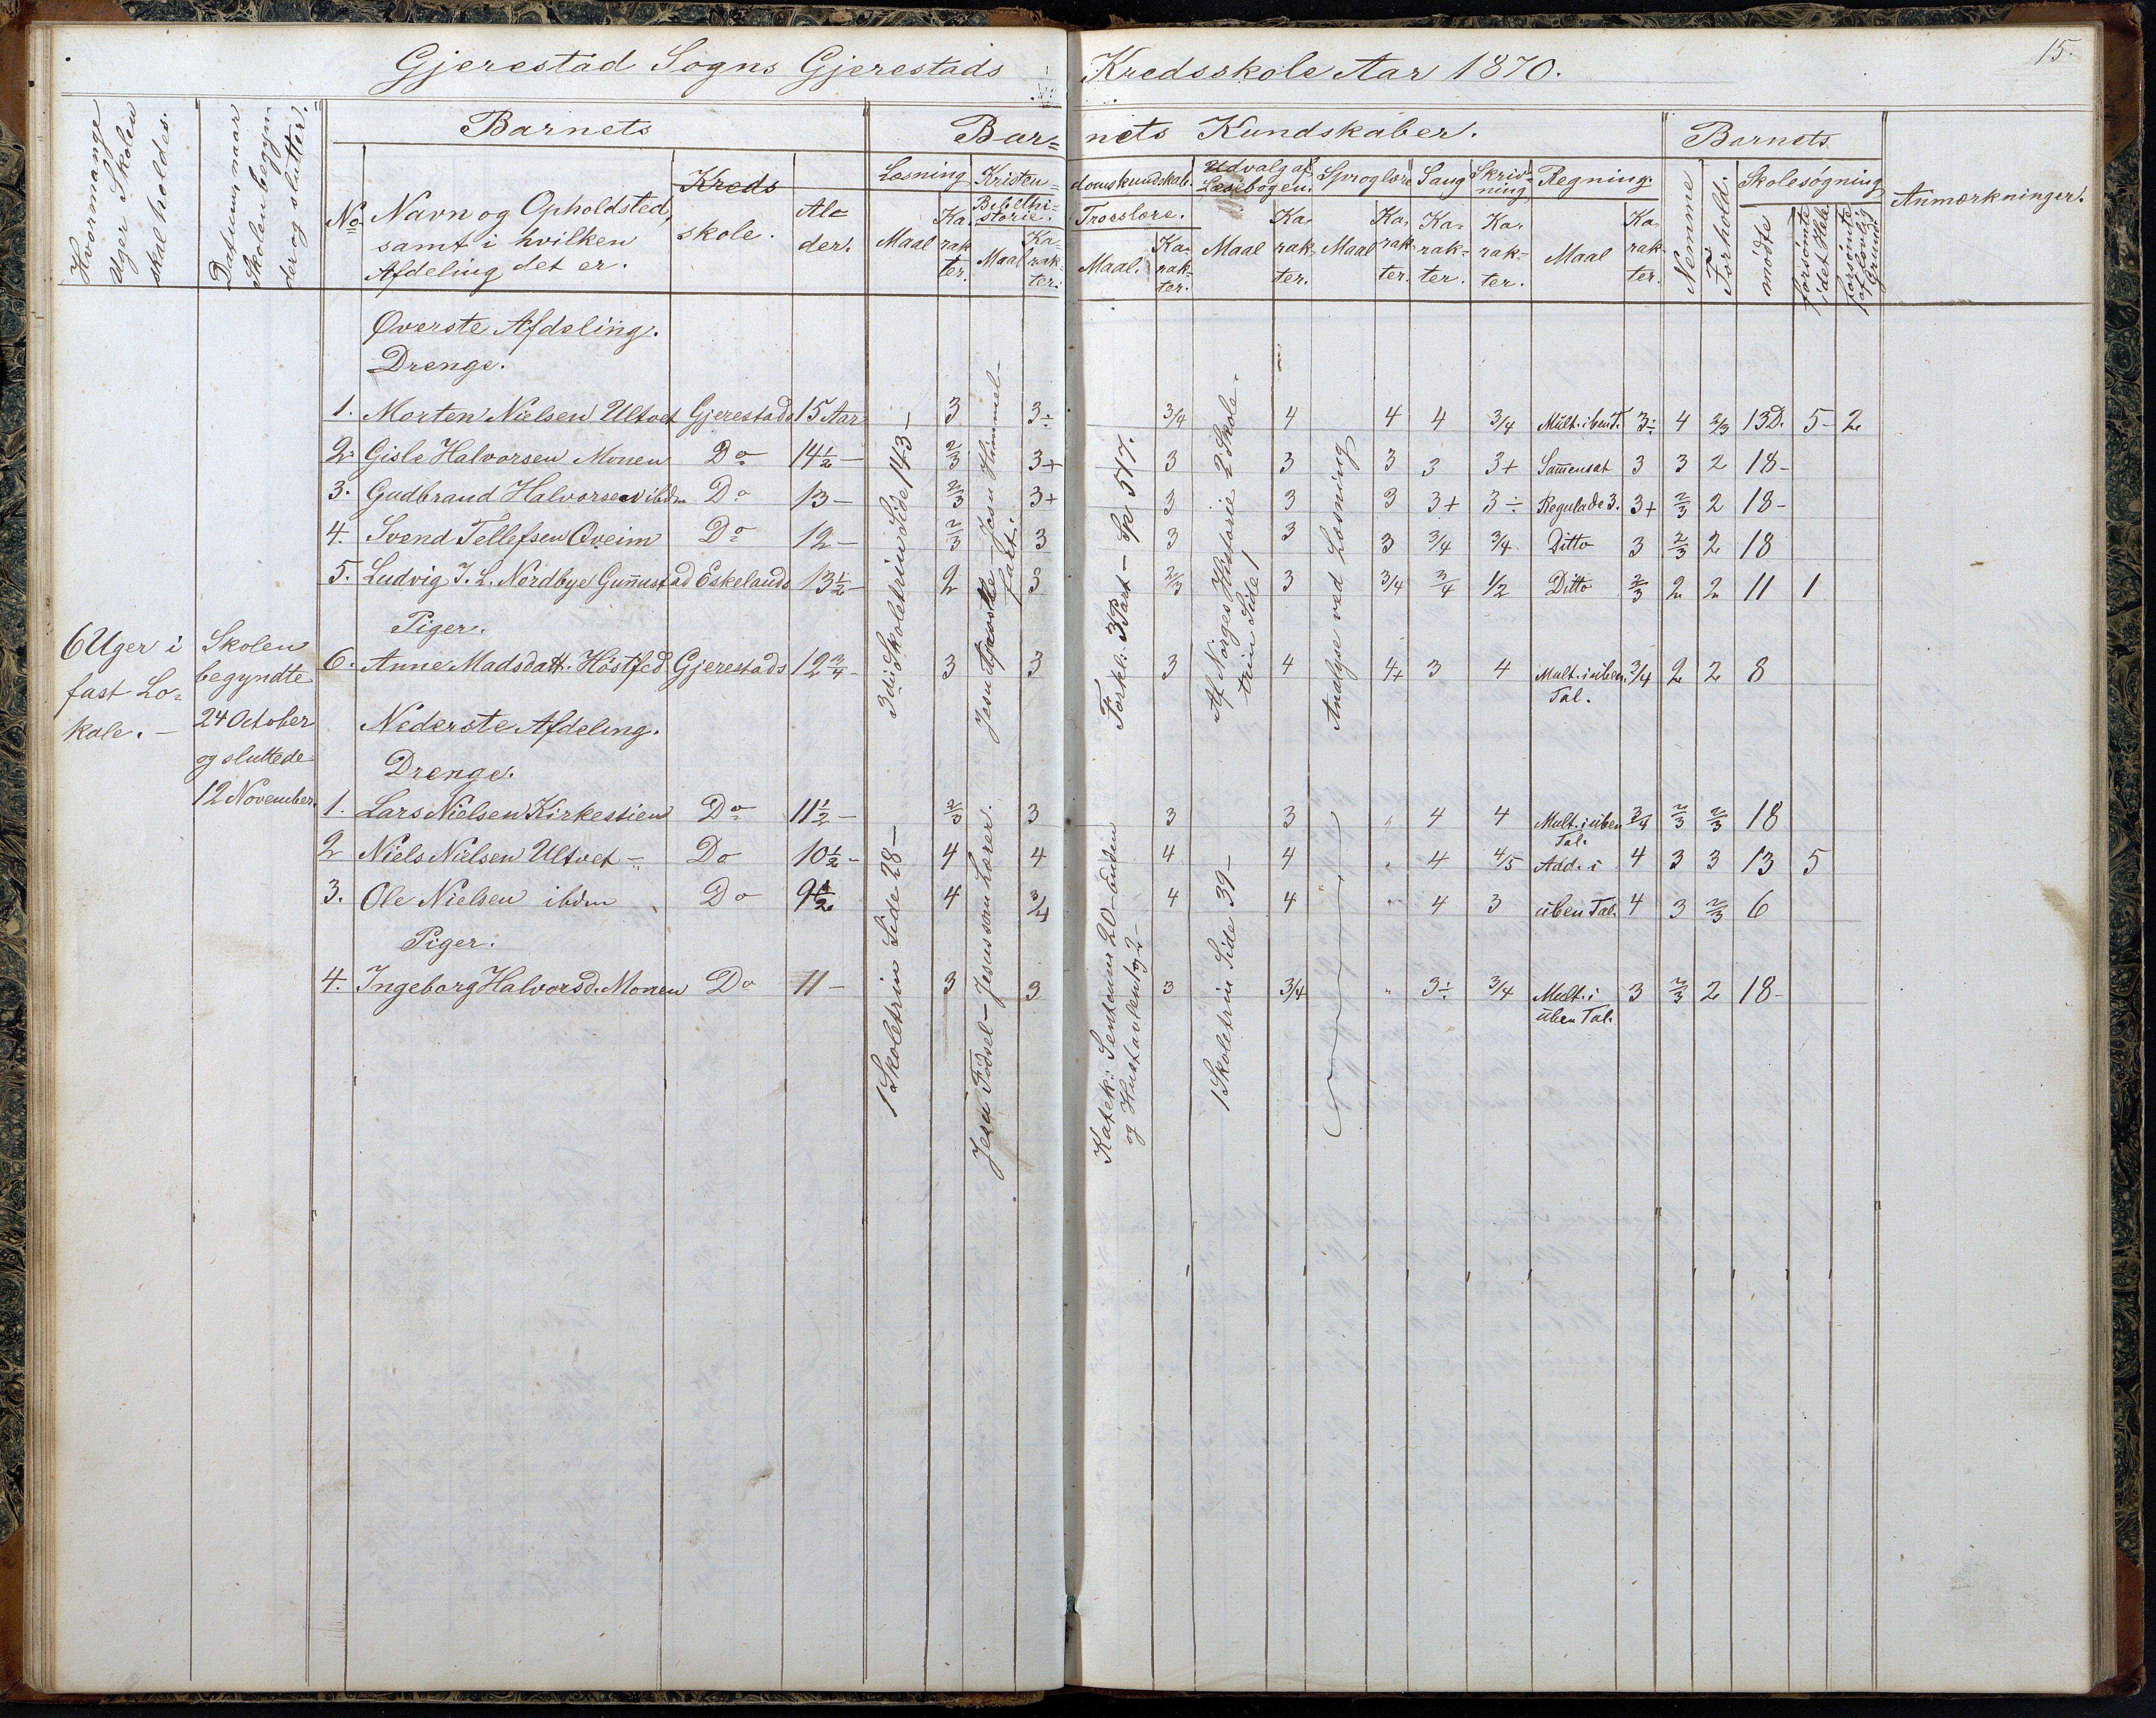 Gjerestad Sogns Gjerestads Kredsskole Aar 1870. 15.
Hvormange Uger Skolen skal holdes.
Datum, naar Skolen begynder og slutter.
Barnets
Barnets Kundskaber.
Barnets
No.
Navn og Opholdsted, samt i hvilken Afdeling det er.
Kreds skole.
Alder.
Læsning
Maal
Karakter.
Kristendomskundskab.
Bibelhistorie.
Maal
Karakter.
Troeslære.
Maal.
Karakter.
Udvalg af Læsebogen.
Maal
Karakter.
Sproglære
Maal
Karakter.
Sang
Karakter.
Skrivning
Karakter.
Regning.
Maal
Karakter.
Nemme
Forhold.
Skolesøgning
mødte
forsømte i det Hele.
forsømte af lovlig Grund.
Anmærkninger.
6 Uger i fast Lokale. –
Skolen begyndte 24 October og sluttede 12 November.
Øverste Afdeling.
Drenge.
1. Morten Nielsen Ultvet Gjerestads 15 Aar 3 3÷ 3/4 4 4 4 3/4 Mult. i ben. T. 3÷ 4 2/3 13 D. 5 – 2
2. Gisle Halvorsen Monen Do 14 1/2 – 2/3 3+ 3 3 3 3 3+ Sam̄ensat 3 3 2 18 –
3. Gudbrand Halvorsen ibdm Do 13 – 2/3 3+ 3 3 3 3+ 3÷ Regulade 3. 3+ 2/3 2 18 –
4. Svend Tellefsen Qveim Do 12 – 2/3 3 3 3 3 3/4 3/4 Ditto 3 2/3 2 18
5. Ludvig J. L. Nordbye Gun̄nustad Eskelands 13 1/2 – 2 3 2/3 3 3/4 3/4 1/2 Ditto 2/3 2 2 11 1
Piger.
6. Anne Madsdatt. Høstfed Gjerestads 12 3/4 – 3 3 3 4 4+ 3 4 Mult. i uben. Tal. 3/4 2 2 8
3die Skoletrin Side 143 –
Jesu Apostle – Jesu Himmelfart.
Forkl: 3 Part – Sp 547.
Af Norges Historie 2 Skoletrin Side 1
Analyse ved Læsning
Nederste Afdeling.
Drenge.
1. Lars Nielsen Kirkestien Do 11 1/2 – 2/3 3 3 3 " 4 4 Mult. i uben Tal. 3/4 2/3 2/3 18
2 Niels Nielsen Ultvet – Do 10 1/2 – 4 4 4 4 " 4 4/5 Add. i 4 3 3 13 5
3. Ole Nielsen ibdm Do 9 1/2 4 3/4 4 4 " 4 3 uben Tal. 4 3 2/3 6
Piger.
4. Ingeborg Halvorsd. Monen Do 11 – 3 3 3 3/4 " 3÷ 3/4 Mult. i uben Tal. 3 2/3 2 18 –
1 Skoletrin Side 28 –
Jesu Fødsel – Jesus som Lærer.
Katek: Sentens 20 – Enden og Hustavlen
1 Skoletrin Side 39 –